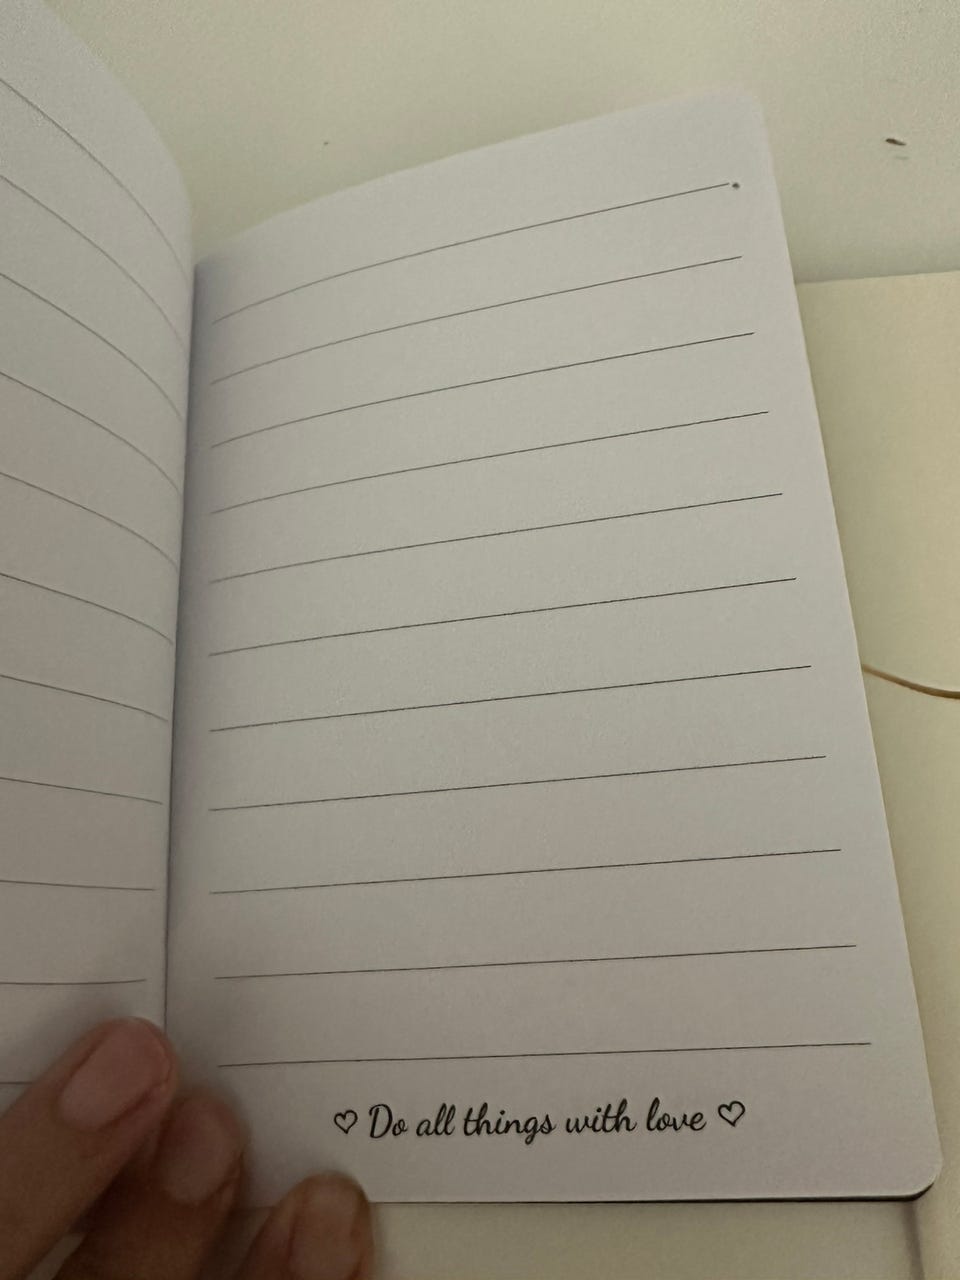 ♡ Do all things with love ♡